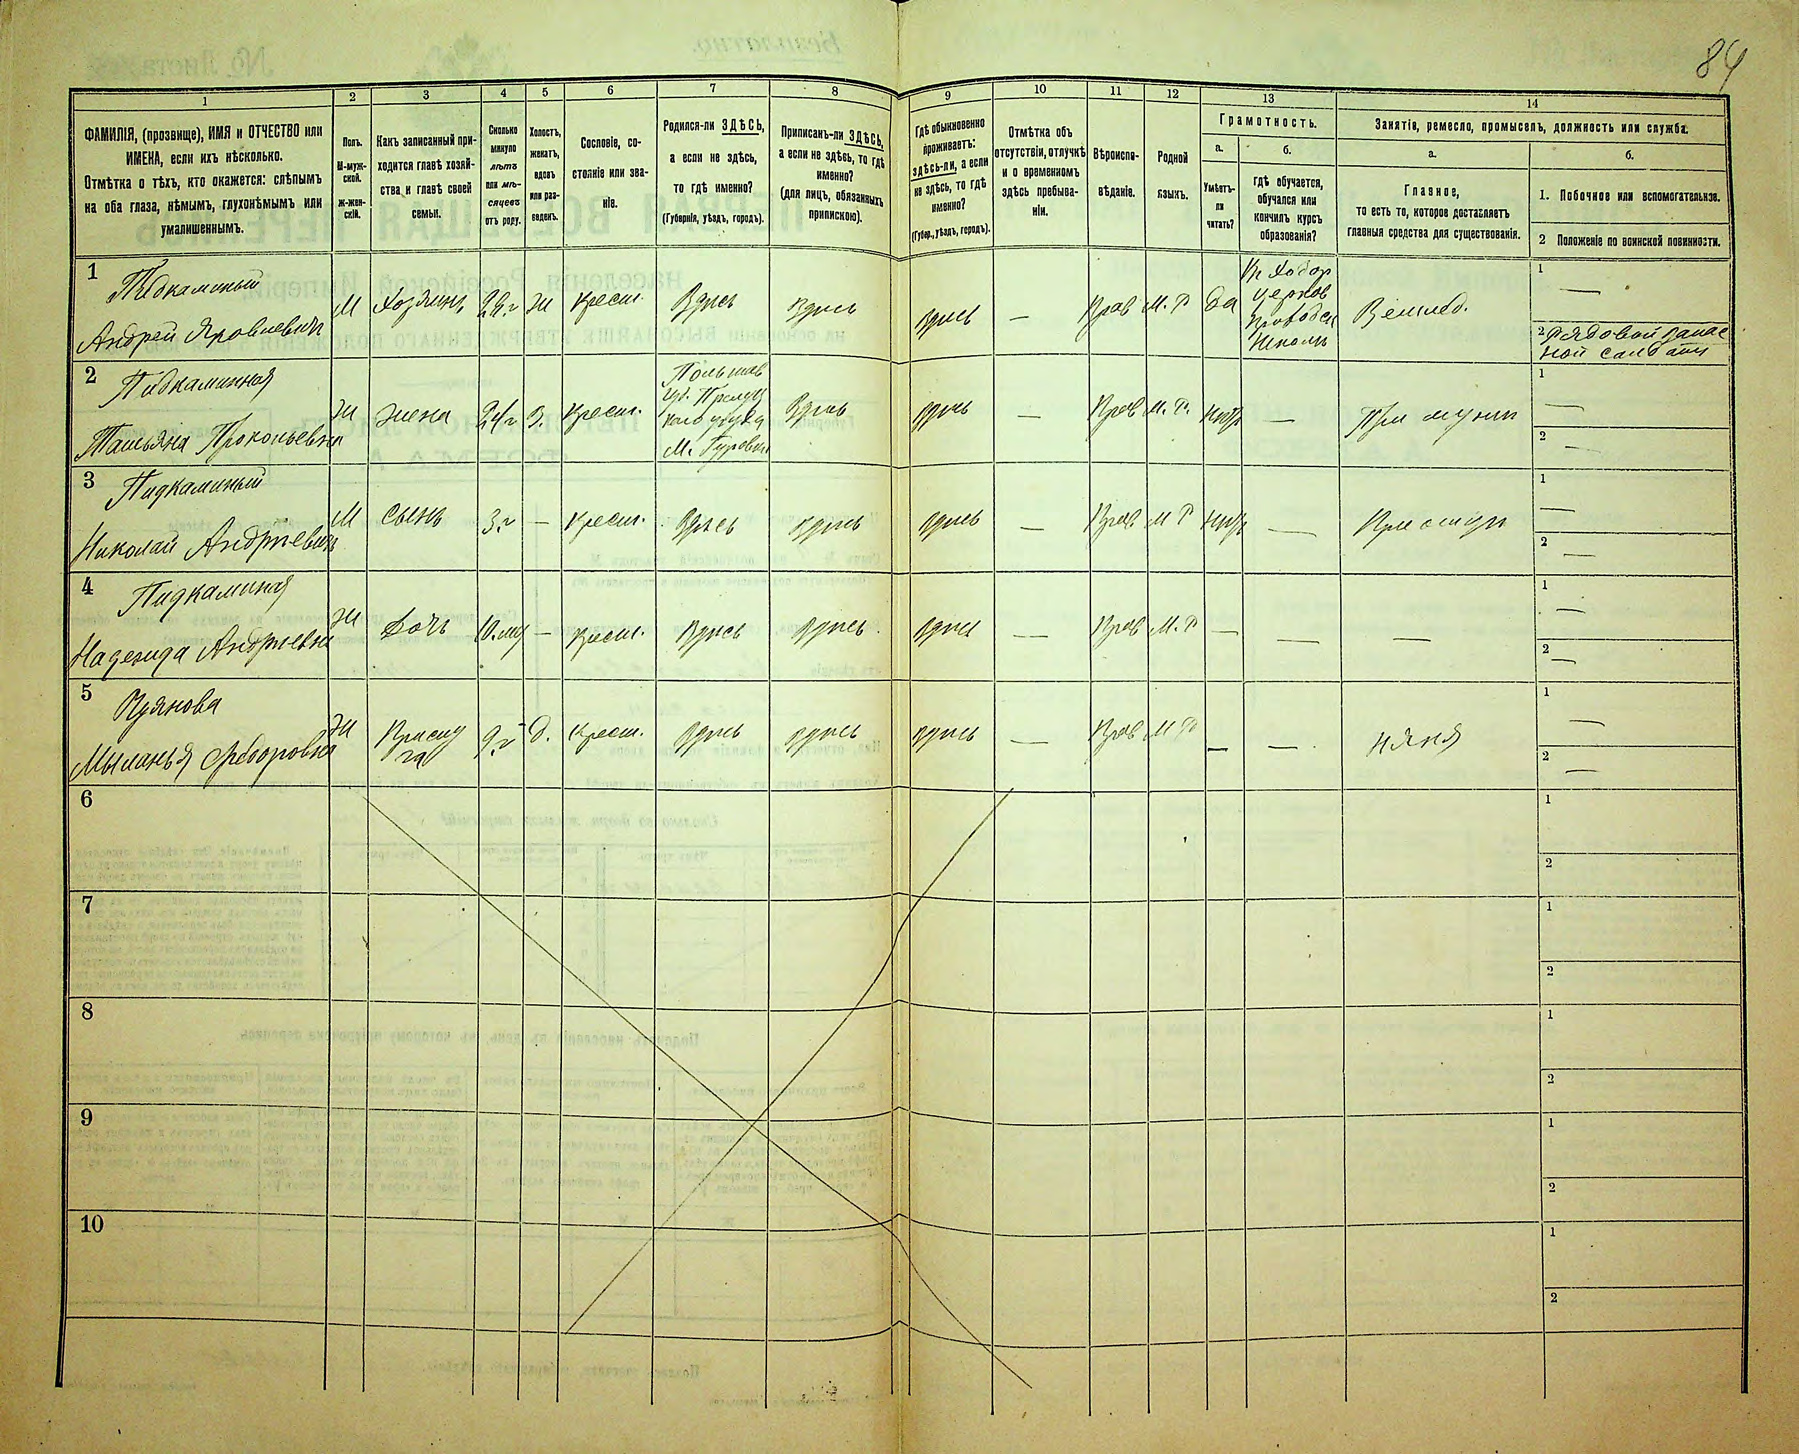 84
1
2
3
4
5
6
7
8
9
10
11
12
13
14
ФАМИЛІЯ, (прозвище), ИМЯ и ОТЧЕСТВО или
ИМЕНА, если ихъ нѣсколько.
Отмѣтка о тѣхъ, кто окажется: слѣпымъ
на оба глаза, нѣмымъ, глухонѣмымъ или
умалишеннымъ.
Полъ.
М-муж-
ской.
Ж-жен-
скій.
Какъ записанный при-
ходится главѣ хозяй-
ства и главѣ своей
семьи.
Сколько
минуло
лѣтъ
или мѣ-
сяцевъ
отъ роду.
Холостъ,
женатъ,
вдовъ
или раз-
веденъ.
Сословіе, со-
стояніе или зва-
ніе.
Родился-ли ЗДѢСЬ,
а если не здѣсь,
то гдѣ именно?
(Губернія, уѣздъ, городъ).
Приписанъ-ли ЗДѢСЬ,
а если не здѣсь, то гдѣ
именно?
(для лицъ, обязанныхъ
припискою).
Гдѣ обыкновенно
проживаетъ:
здѣсь-ли, а если
не здѣсь, то гдѣ
именно?
(Губер., уѣздъ, городъ).
Отмѣтка объ
отсутствіи, отлучкѣ
и о временномъ
здѣсь пребыва-
ніи.
Вѣроиспо-
вѣданіе.
Родной
языкъ.
Грамотность.
а.
Умѣетъ-
ли
читать?
б.
гдѣ обучается,
обучался или
кончилъ курсъ
образованія?
Занятіе, ремесло, промыселъ, должность или служба.
а.
Главное,
то есть то, которое доставляетъ
главныя средства для существованія.
б.
1. Побочное или вспомогательное.
2 Положеніе по воинской повинности.
1
Пидкаминый
Андрей Яковлевичъ
М
Хозяинъ
Ж
Крест.
Здѣсь
Здѣсь
Здѣсь
—
Прав
М. Р
Да
Церков
Школы
Землед.
1 —
2 Рядовой запас
ной
2
Пидкаминная
Татьяна Прокопьевна
Ж
Жена
З.
Крест.
Полтав
Здѣсь
Здѣсь
—
Прав
М. Р.
Нѣтъ
—
При мужи
1 —
2 —
3
Пидкаминый
Николай Андріевичъ
М
Сынъ
3. г
—
Крест.
Здѣсь
Здѣсь
Здѣсь
—
Прав
М Р
Нѣтъ
—
При отцѣ
1 —
2 —
4
Пидкаминая
Надежда Андріевна
Ж
Дочь
10. мѣ
—
Крест.
Здѣсь
Здѣсь
Здѣсь
—
Прав
М. Р
—
—
—
1 —
2 —
5
Миланья Федоровна
Ж
Прислу
га
9. г
Д.
Крест.
Здѣсь
Здѣсь
Здѣсь
—
Прав
М Р
—
—
няня
1 —
2 —
6
1
2
7
1
2
8
1
2
9
1
2
10
1
2